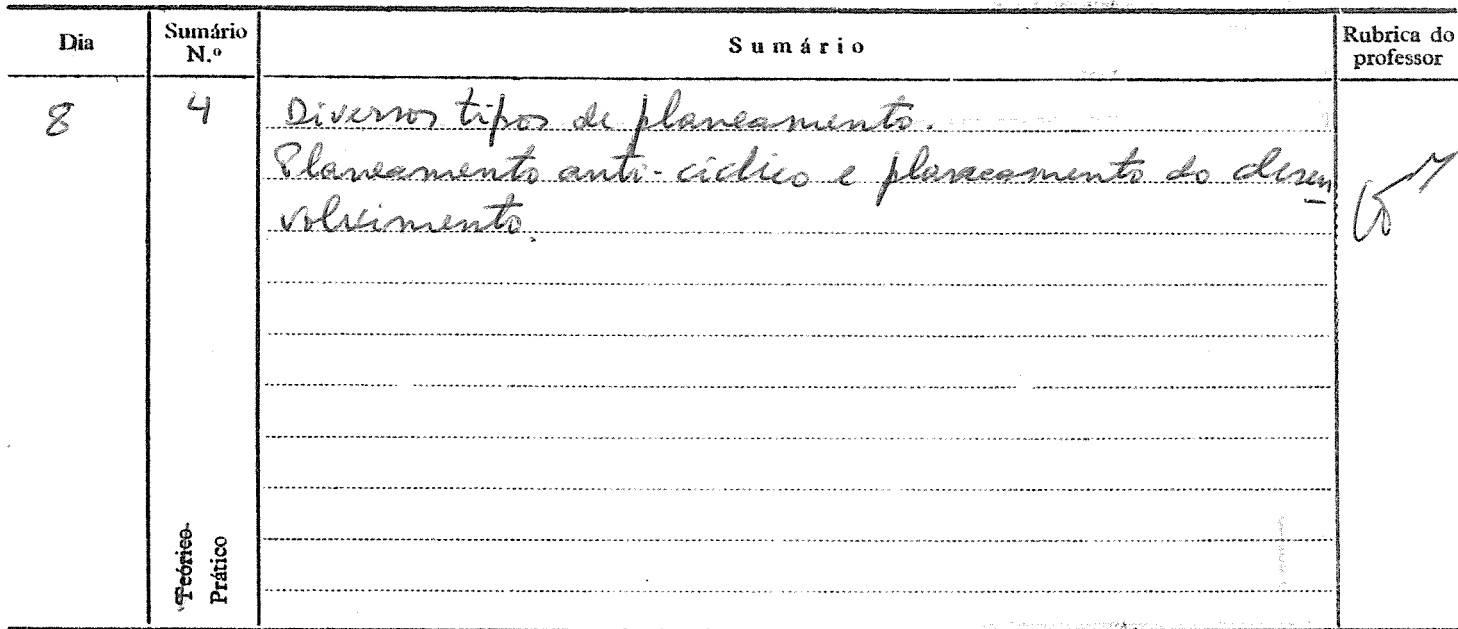 Dia
Sumário N.º
Sumário
Rubrica do professor
8
4
Diversos tipos de planeamento.
Planeamento anti-cíclico e planeamento do desen
volvimento.
Teórico
Prático